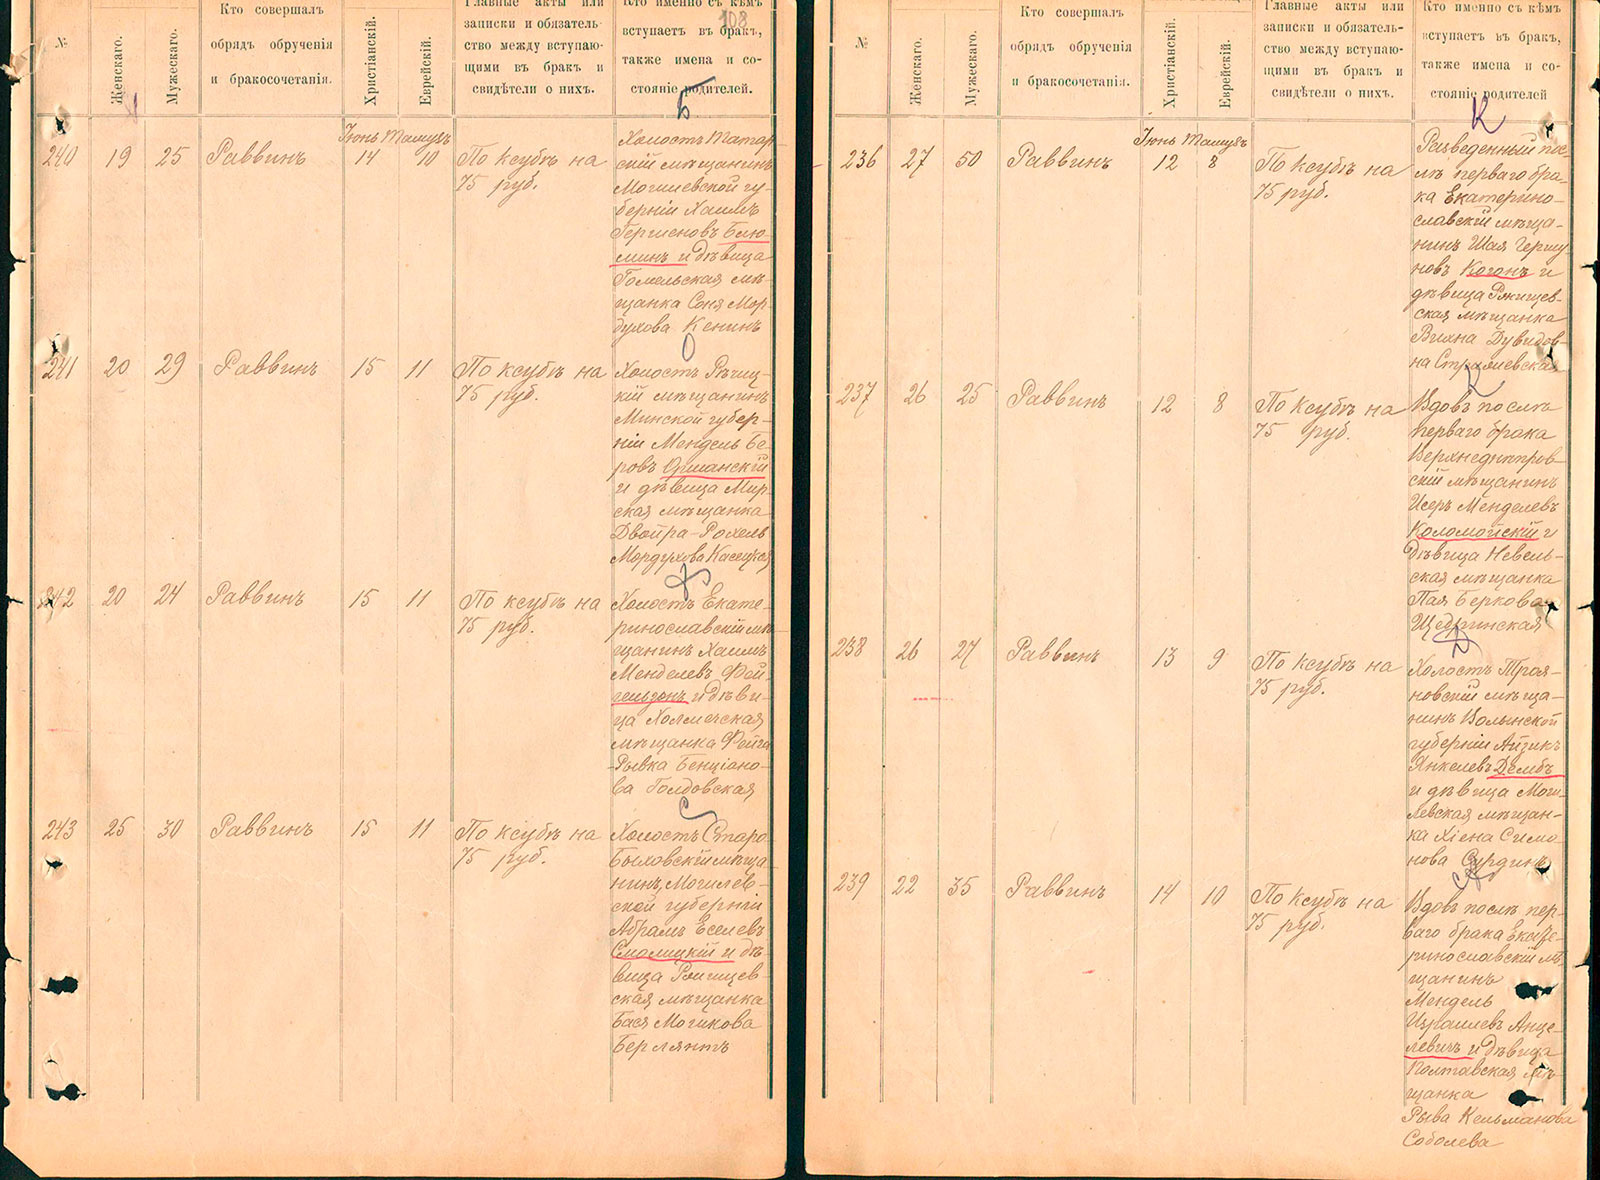 108
№
Женскаго.
Мужескаго.
Кто совершалъ
обрядъ обрученія
и бракосочетанія.
Христіанскій.
Еврейскій.
Главные акты или
записки и обязатель-
ство между вступаю-
щими въ бракъ и
свидѣтели о нихъ.
Кто именно съ кѣмъ
вступаетъ въ бракъ,
также имена и со-
стояніе родителей.
Б
Іюнь Тамузъ
240 19 25 Раввинъ 14 10 По ксубѣ на
75 руб.
Холостъ Татар-
скій мѣщанинъ
Могилевской гу-
берніи Хаимъ
Гершеновъ Блю-
минъ и дѣвица
Гомельская мѣ-
щанка Соня Мор-
духова Кенинъ
О
241 20 29 Раввинъ 15 11 По ксубѣ на
75 руб.
Холостъ Рѣчиц-
кій мѣщанинъ
Минской губер-
ніи Мендель Бе-
ровъ Оршанскій
и дѣвица Мир-
ская мѣщанка
Двойра-Рохель
Мордухова Касецкая
Ф
242 20 24 Раввинъ 15 11 По ксубѣ на
75 руб.
Холостъ Екате-
ринославскій мѣ-
щанинъ Хаимъ
Менделевъ Фей-
гельзонъ и дѣви-
ца Холмечская
мѣщанка Фейга
Рывка Бенціоно-
ва Голдовская
С
243 25 30 Раввинъ 15 11 По ксубѣ на
75 руб.
Холостъ Старо-
Быховскій мѣща-
нинъ Могилев-
ской губерніи
Абрамъ Еселевъ
Смолицкій и дѣ-
вица Ржищев-
ская мѣщанка
Бася Мошкова
Берлянтъ
№
Женскаго.
Мужескаго.
Кто совершалъ
обрядъ обрученія
и бракосочетанія.
Христіанскій.
Еврейскій.
Главные акты или
записки и обязатель-
ство между вступаю-
щими въ бракъ и
свидѣтели о нихъ.
Кто именно съ кѣмъ
вступаетъ въ бракъ,
также имена и со-
стояніе родителей
К
Іюнь Тамузъ
236 27 50 Раввинъ 12 8 По ксубѣ на
75 руб.
Разведенный пос-
лѣ перваго бра-
ка Екатерино-
славскій мѣща-
нинъ Шая Гершу
новъ Когонъ и
дѣвица Ржищев-
ская мѣщанка
Вихна Дувидов-
на Стралиевская
К
237 26 25 Раввинъ 12 8 По ксубѣ на
75 руб.
Вдовъ послѣ
перваго брака
Верхнеднѣпров-
скій мѣщанинъ
Исеръ Менделевъ
Коломойскій и
дѣвица Невель-
ская мѣщанка
Пая Беркова
Щедринская
Д
238 26 27 Раввинъ 13 9 По ксубѣ на
75 руб.
Холостъ Троя-
новскій мѣща-
нинъ Волынской
губерніи Айзикъ
Янкелевъ Дембъ
и дѣвица Моги-
левская мѣщан-
ка Хіена Симо-
нова Сурдинъ
239 22 35 Раввинъ 14 10 По ксубѣ на
75 руб.
Вдовъ послѣ пер-
ваго брака Екате-
ринославскій мѣ-
щанинъ
Мендель
Израилевъ Анце-
левичъ и дѣвица
Полтавская мѣ-
щанка
Рыва Кельманова
Соболева